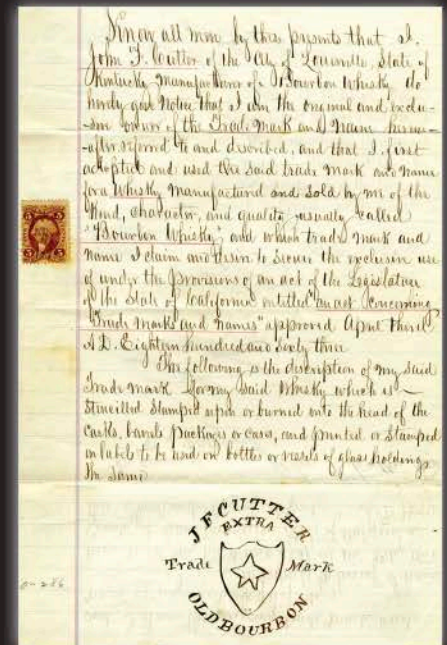 Know all men by these presents that I.
John F. Cutter of the City of Louisville, State of
Kentucky, Manufacturer of Bourbon Whisky do
hereby give notice that I am the original and exclu-
-sive owner of the Trade Mark and name herein-
-after referred to and described, and that I first
adopted and used the said trade mark and name
for a Whisky manufactured and sold by me of the
kind, character, and quality, usually called
"Bourbon Whisky", and which trade mark and
name I claim and desire to secure the exclusive use
of under the provisions of an act of the Legislature
of the State of California entitled "an act concerning
Trade marks and names" approved April third
A.D. Eighteen hundred and Sixty three
The following is the description of my said
Trade mark for my said Whisky which is —
Stencilled Stamped upon or burned onto the head of the
casks, barrels packages or cases, and printed or stamped
on labels to be used on bottles or vessels of glass holding
the same
J F CUTTER
EXTRA
Trade Mark
OLD BOURBON